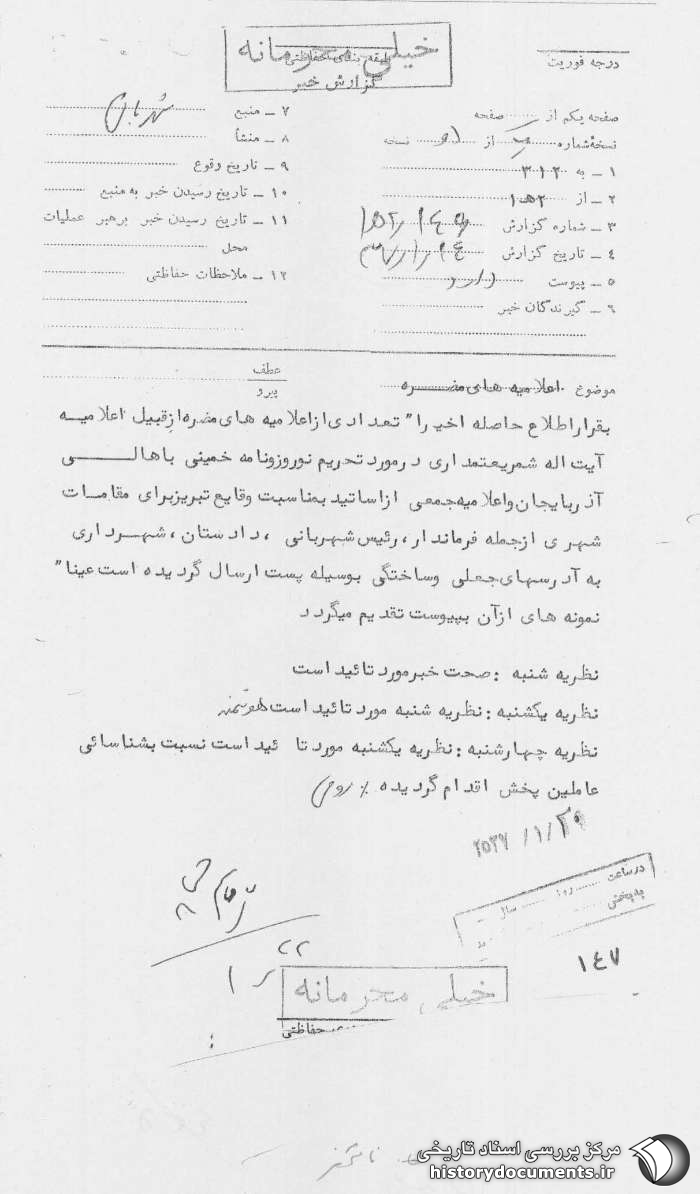 خیلی محرمانه
طبقه بندی حفاظتی
گزارش خبر
درجه فوریت
صفحه یکم از صفحه
نسخه شماره از نسخه
۱ – به ۳۱۲
۲ – از ۱ه۲
۳ – شماره گزارش
٤ – تاریخ گزارش
۵ – پیوست دارد
٦ – گیرندگان خبر
۷ – منبع شهربانی
۸ – منشأ
۹ – تاریخ وقوع
۱۰ – تاریخ رسیدن خبر به منبع
۱۱ – تاریخ رسیدن خبر برهبر عملیات
محل
۱۲ – ملاحظات حفاظتی
موضوع اعلامیه های مضره
عطف
پیرو
بقرار اطلاع حاصله اخیرا" تعدادی از اعلامیه های مضره از قبیل اعلامیه
آیت اله شمریعتمداری در مورد تحریم نوروز و نامه خمینی با هالی
آذربایجان و اعلامیه جمعی از اساتید بمناسبت وقایع تبریز برای مقامات
شهری از جمله فرماندار، رئیس شهربانی ، دادستان ، شهرداری
به آدرسهای جعلی وساختگی بوسیله پست ارسال گردیده است عینا"
نمونه های ازآن بپیوست تقدیم میگردد
نظریه شنبه : صحت خبر مورد تائید است
نظریه یکشنبه : نظریه شنبه مورد تائید است هوشمند
نظریه چهارشنبه : نظریه یکشنبه مورد تا ئید است نسبت بشناسائی
عاملین پخش اقدام گردیده ٪
در ساعت روز سال
به بخش
۱٤۷
۲۲
۱
خیلی محرمانه
حفاظتی
مرکز بررسی اسناد تاریخی
historydocuments.ir